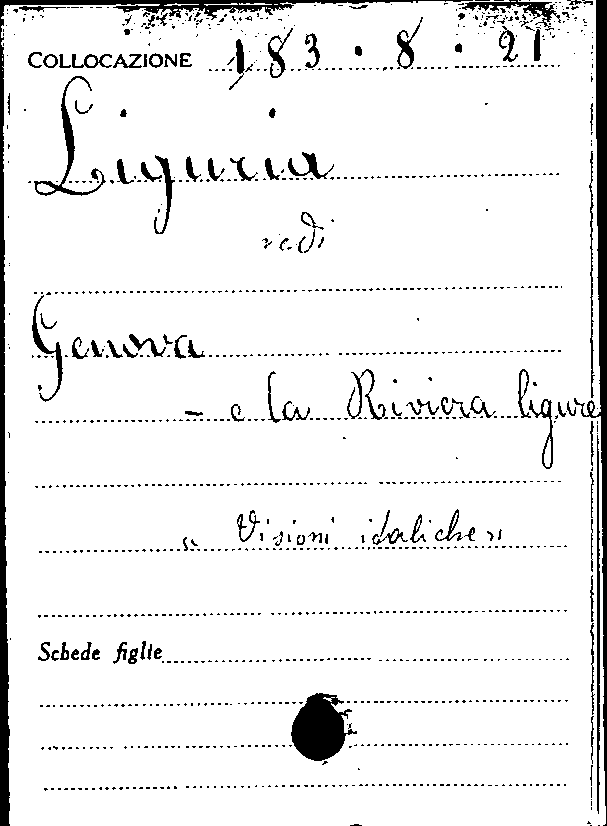 COLLOCAZIONE 183.8.21
Liguria
vedi
Genova
- e la Riviera ligure
« Visioni italiche »
Schede figlie